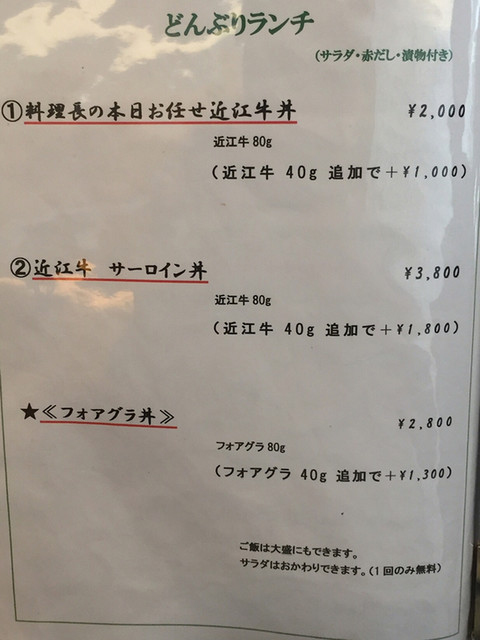 どんぶりランチ
(サラダ・赤だし・漬物付き)
①料理長の本日お任せ近江牛丼 ¥2,000
近江牛80g
(近江牛 40g 追加で＋¥1,000)
②近江牛 サーロイン丼 ¥3,800
近江牛80g
(近江牛 40g 追加で＋¥1,800)
★≪フォアグラ丼≫ ¥2,800
フォアグラ 80g
(フォアグラ 40g 追加で＋¥1,300)
ご飯は大盛にもできます。
サラダはおかわりできます。(1回のみ無料)